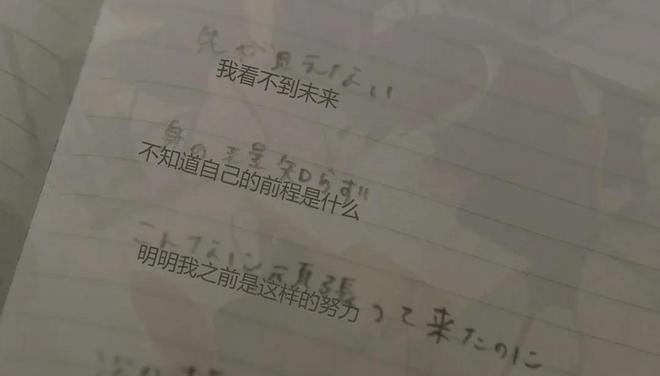 先が見えない
我看不到未来
身の程知らず
不知道自己的前程是什么
こんなに頑張って来たのに
明明我之前是这样的努力